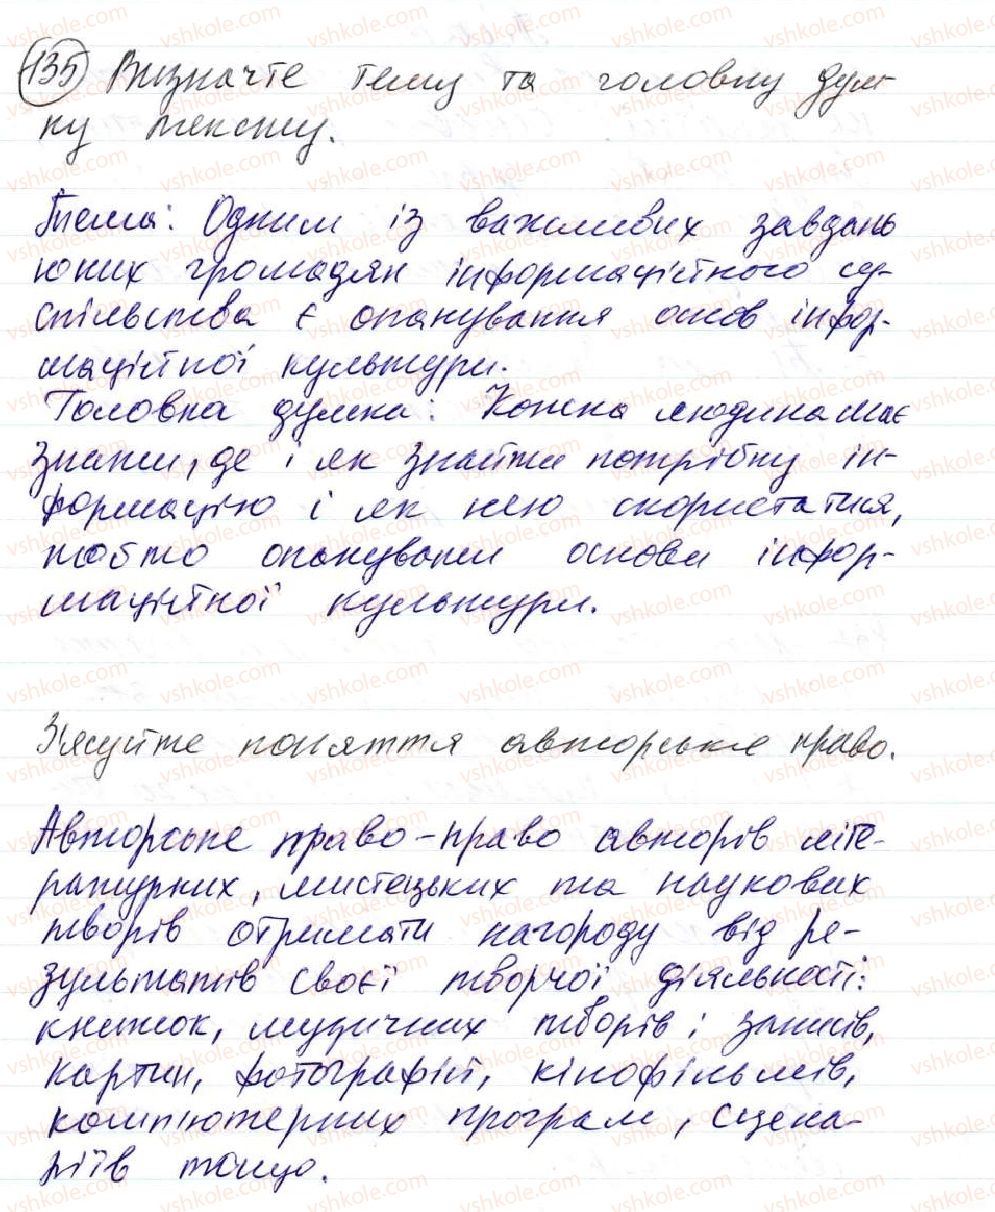 135 Визначте тему та головну дум-
ку тексту.
Тема: Одним із важливих завдань
юних громадян інформаційного су-
спільства є опанування основ інфор-
маційної культури.
Головна думка: Кожна людина має
знати, де і як знайти потрібну ін-
формацію і як нею скористатися,
тобто опанувати основи інфор-
маційної культури.
З'ясуйте поняття авторське право.
Авторське право - право авторів літе-
ратурних, мистецьких та наукових
творів отримати нагороду від ре-
зультатів своєї творчої діяльності:
книжок, музичних творів і записів,
картин, фотографій, кінофільмів,
комп'ютерних програм, сцена-
ріїв тощо.
vshkole.com